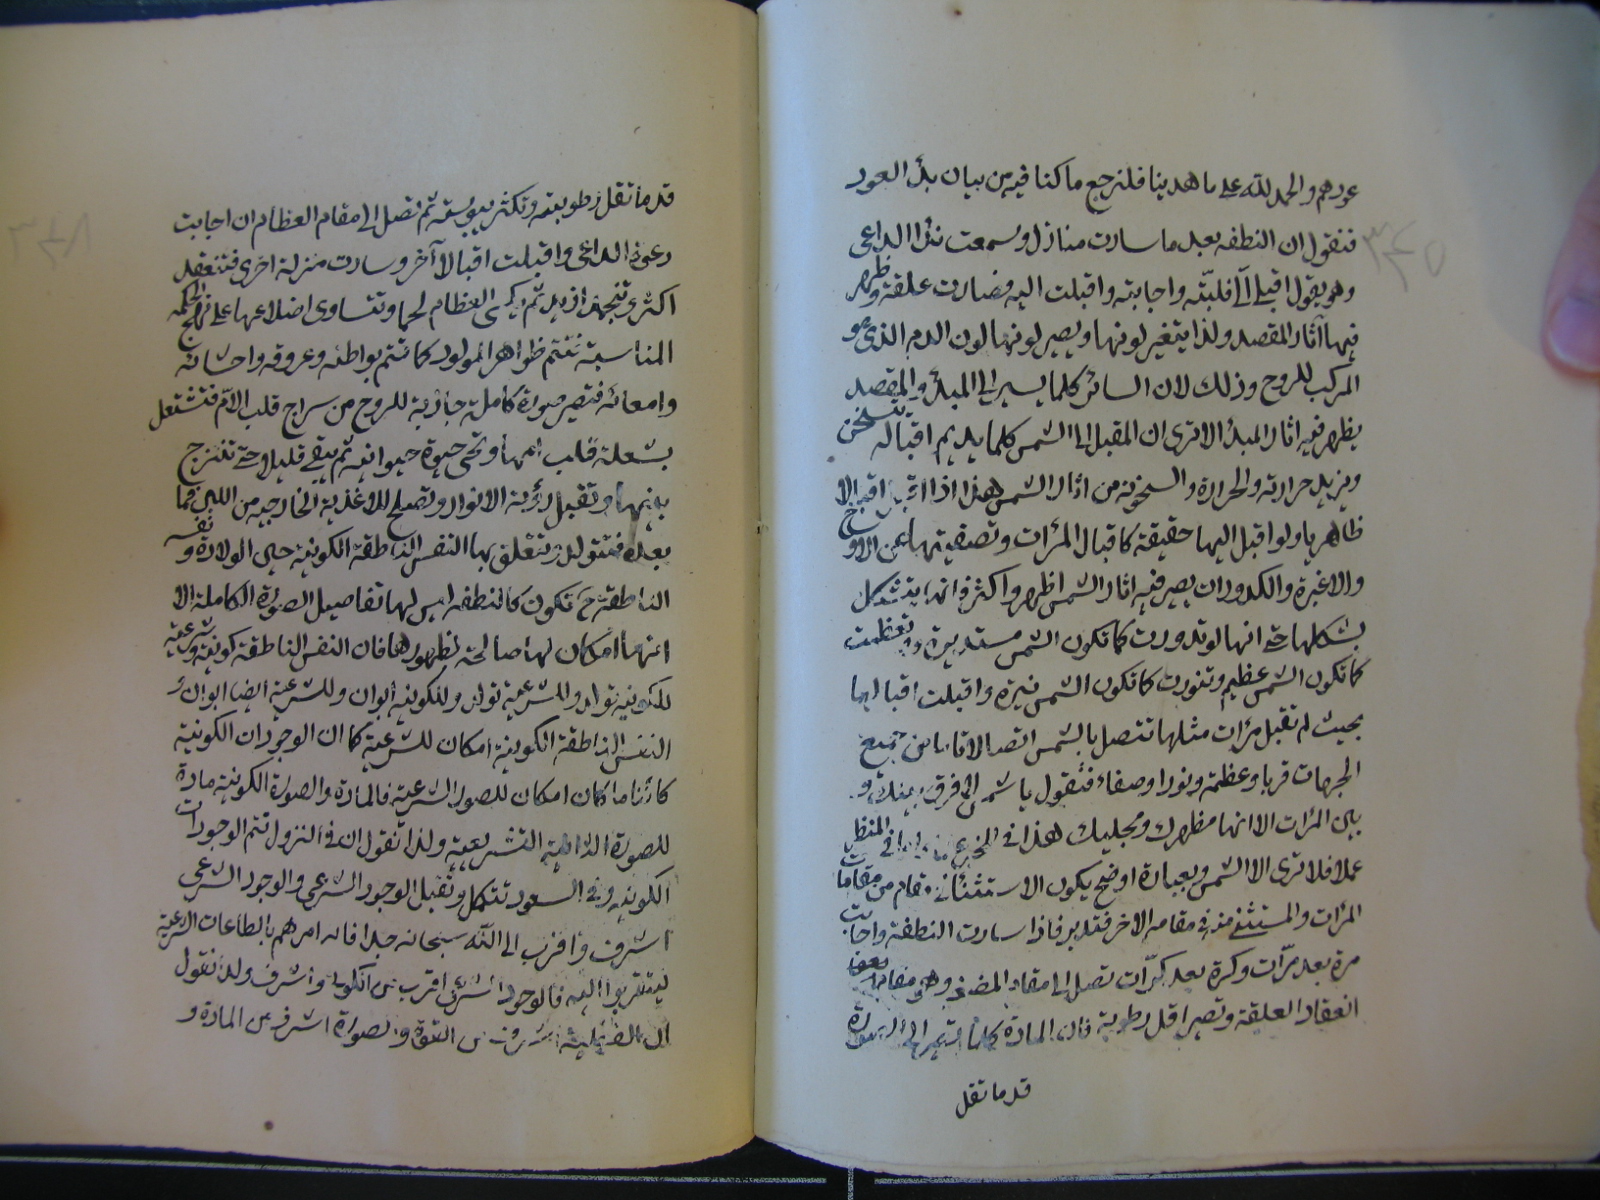 عودهم والحمد لله على ما هدينا فلنرجع ما كنا فيه من بيان بدأ العود
فنقول ان النطفه بعد ما سارت منازل وسمعت نداء الداعى
وهو يقول اقبل الىّ فلبّته واجابته واقبلت اليه فصارت علقة وظهر
فيها آثار المقصد ولذا يتغير لونها ويصير لونها لون الدم الذى هو
المركب للروح وذلك لان السائر كلما يسير الى المبدأ والمقصد
يظهر فيه اثار المبدأ الاترى ان المقبل الى الشمس كلما يديم اقباله يتسخن
ويزيد حرارته والحرارة والسخونه من اثار الشمس هذا اذا اقبل اقبالا
ظاهريا ولو اقبل اليها حقيقة كاقبال المرآت وتصفيتها عن الاوساخ
والاغبرة والكدورات يصير فيه اثار الشمس اظهر واكثر فانها يتشكل
بشكلها حتى انها لو تدورت كما تكون الشمس مستديرة وتعظمت
كما تكون الشمس عظيم وتنورت كما تكون الشمس نيرة واقبلت اقبالها
بحيث لم تقبل مرآت مثلها تتصل بالشمس اتصالا تاما من جميع
الجهات قربا وعظمة ونورا وصفاء فتقول يا شمس لا فرق بينك و
بين المرآت الا انها مظهرك ومجليك هذا فى المخبر واما فى المنظر
عملا فلا ترى الا الشمس وبعبارة اوضح يكون الاستثناء فى مقام من مقامات
المرآت والمستثنى منه فى مقامه الاخر فتدبر فاذا سارت النطفة واجابت
مرة بعد مرّات وكرة بعد كرّات تصل الى مقام المضغة وهى مقام
انعقاد العلقة وتصير اقل رطوبة فان المادة كلما تسير الى الصورة
قدما تقل
قدما تقل رطوبته وتكثر يبوسته ثم تصل الى مقام العظام ان اجابت
دعوة الداعى واقبلت اقبالا آخر وسارت منزلة اخرى فتنعقد
اكثر وتنجمد ازيد ثم يكسى العظام لحما وتتساوى اضلاعها على نهج الحكمه
المناسبة فتتم ظواهر المولود كما تتم بواطنه وعروقه واحشائه
وامعائه فتصير صورة كاملة جاذبة للروح من سراج قلب الامّ فتشتعل
بشعلة قلب امها وتحى حيوة حيوانيه ثم يبقى قليلا حتى تمتزج
بينها وتقبل رؤية الانوار وتصلح للاغذية الخارجيه من اللبن فما
بعده فتتولد وتتعلق بها النفس الناطقة الكونية حين الولادة ونفسه
الناطقة ح تكون كالنطفه ليس لها تفاصيل الصورة الكاملة الا
انها امكان لها صالحة لظهورها فان النفس الناطقة كونية وشرعية
للكونية تولد وللشرعية تولد وللكونية ابوان وللشرعية ايضا ابوان و
النفس الناطقة الكونية امكان للشرعية كما ان الوجودات الكونية
كائنا ما كان امكان للصور الشرعية فالمادة والصورة الكونية مادة
للصورة التشريعية ولذا نقول ان فى النزول تتم الوجودات
الكونيه وفى الصعود تتكمل وتقبل الوجود الشرعى والوجود الشرعى
اشرف واقرب الى الله سبحانه جدا فانه امرهم بالطاعات الشرعية
ليتقربوا اليه فالوجود الشرعى اقرب من الكونى واشرف ولذا نقول
ان الفعلية اشرف من القوة والصورة اشرف من المادة و